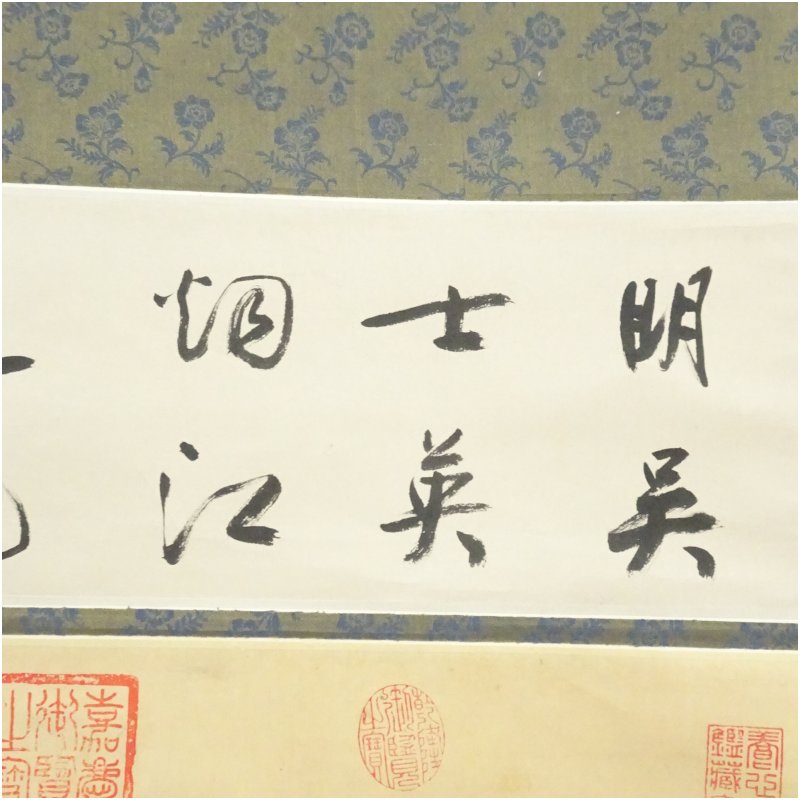 明吴
士英
烟江
乾隆
御覽
之寶
嘉慶
御覽
之寶
養心
鑑藏